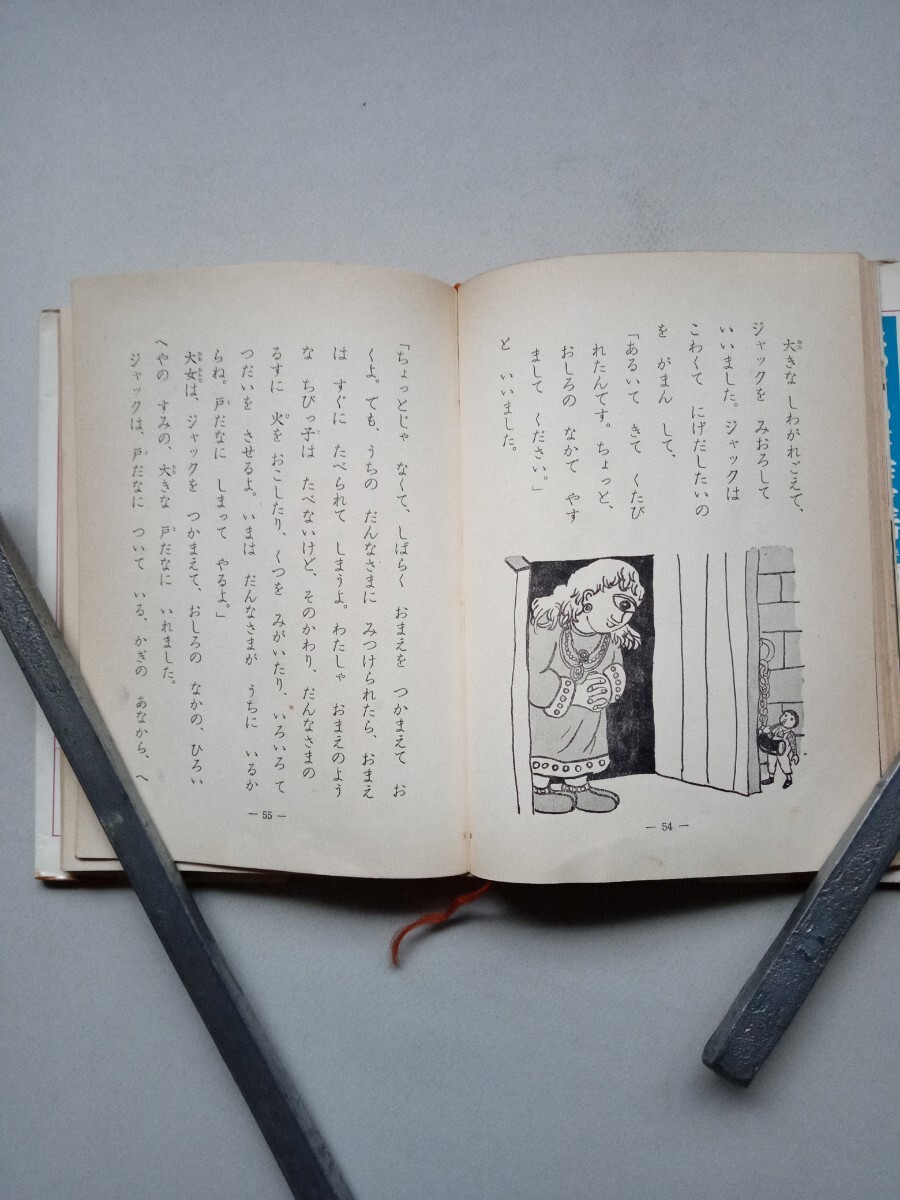 大きな しわがれごえで、
ジャックを みおろして
いいました。ジャックは
こわくて にげだしたいの
を がまん して、
「あるいて きて くたび
れたんです。ちょっと、
おしろの なかで やす
まして ください。」
と いいました。
— 54 —
「ちょっとじゃ なくて、しばらく おまえを つかまえて お
くよ。でも、うちの だんなさまに みつけられたら、おまえ
は すぐに たべられて しまうよ。わたしゃ おまえのよう
な ちびっ子は たべないけど、そのかわり、だんなさまの
るすに 火を おこしたり、くつを みがいたり、いろいろ て
つだいを させるよ。いまは だんなさまが うちに いるか
らね。戸だなに しまって やるよ。」
大女は、ジャックを つかまえて、おしろの なかの、ひろい
へやの すみの、大きな 戸だなに いれました。
ジャックは、戸だなに ついて いる、かぎの あなから、へ
— 55 —